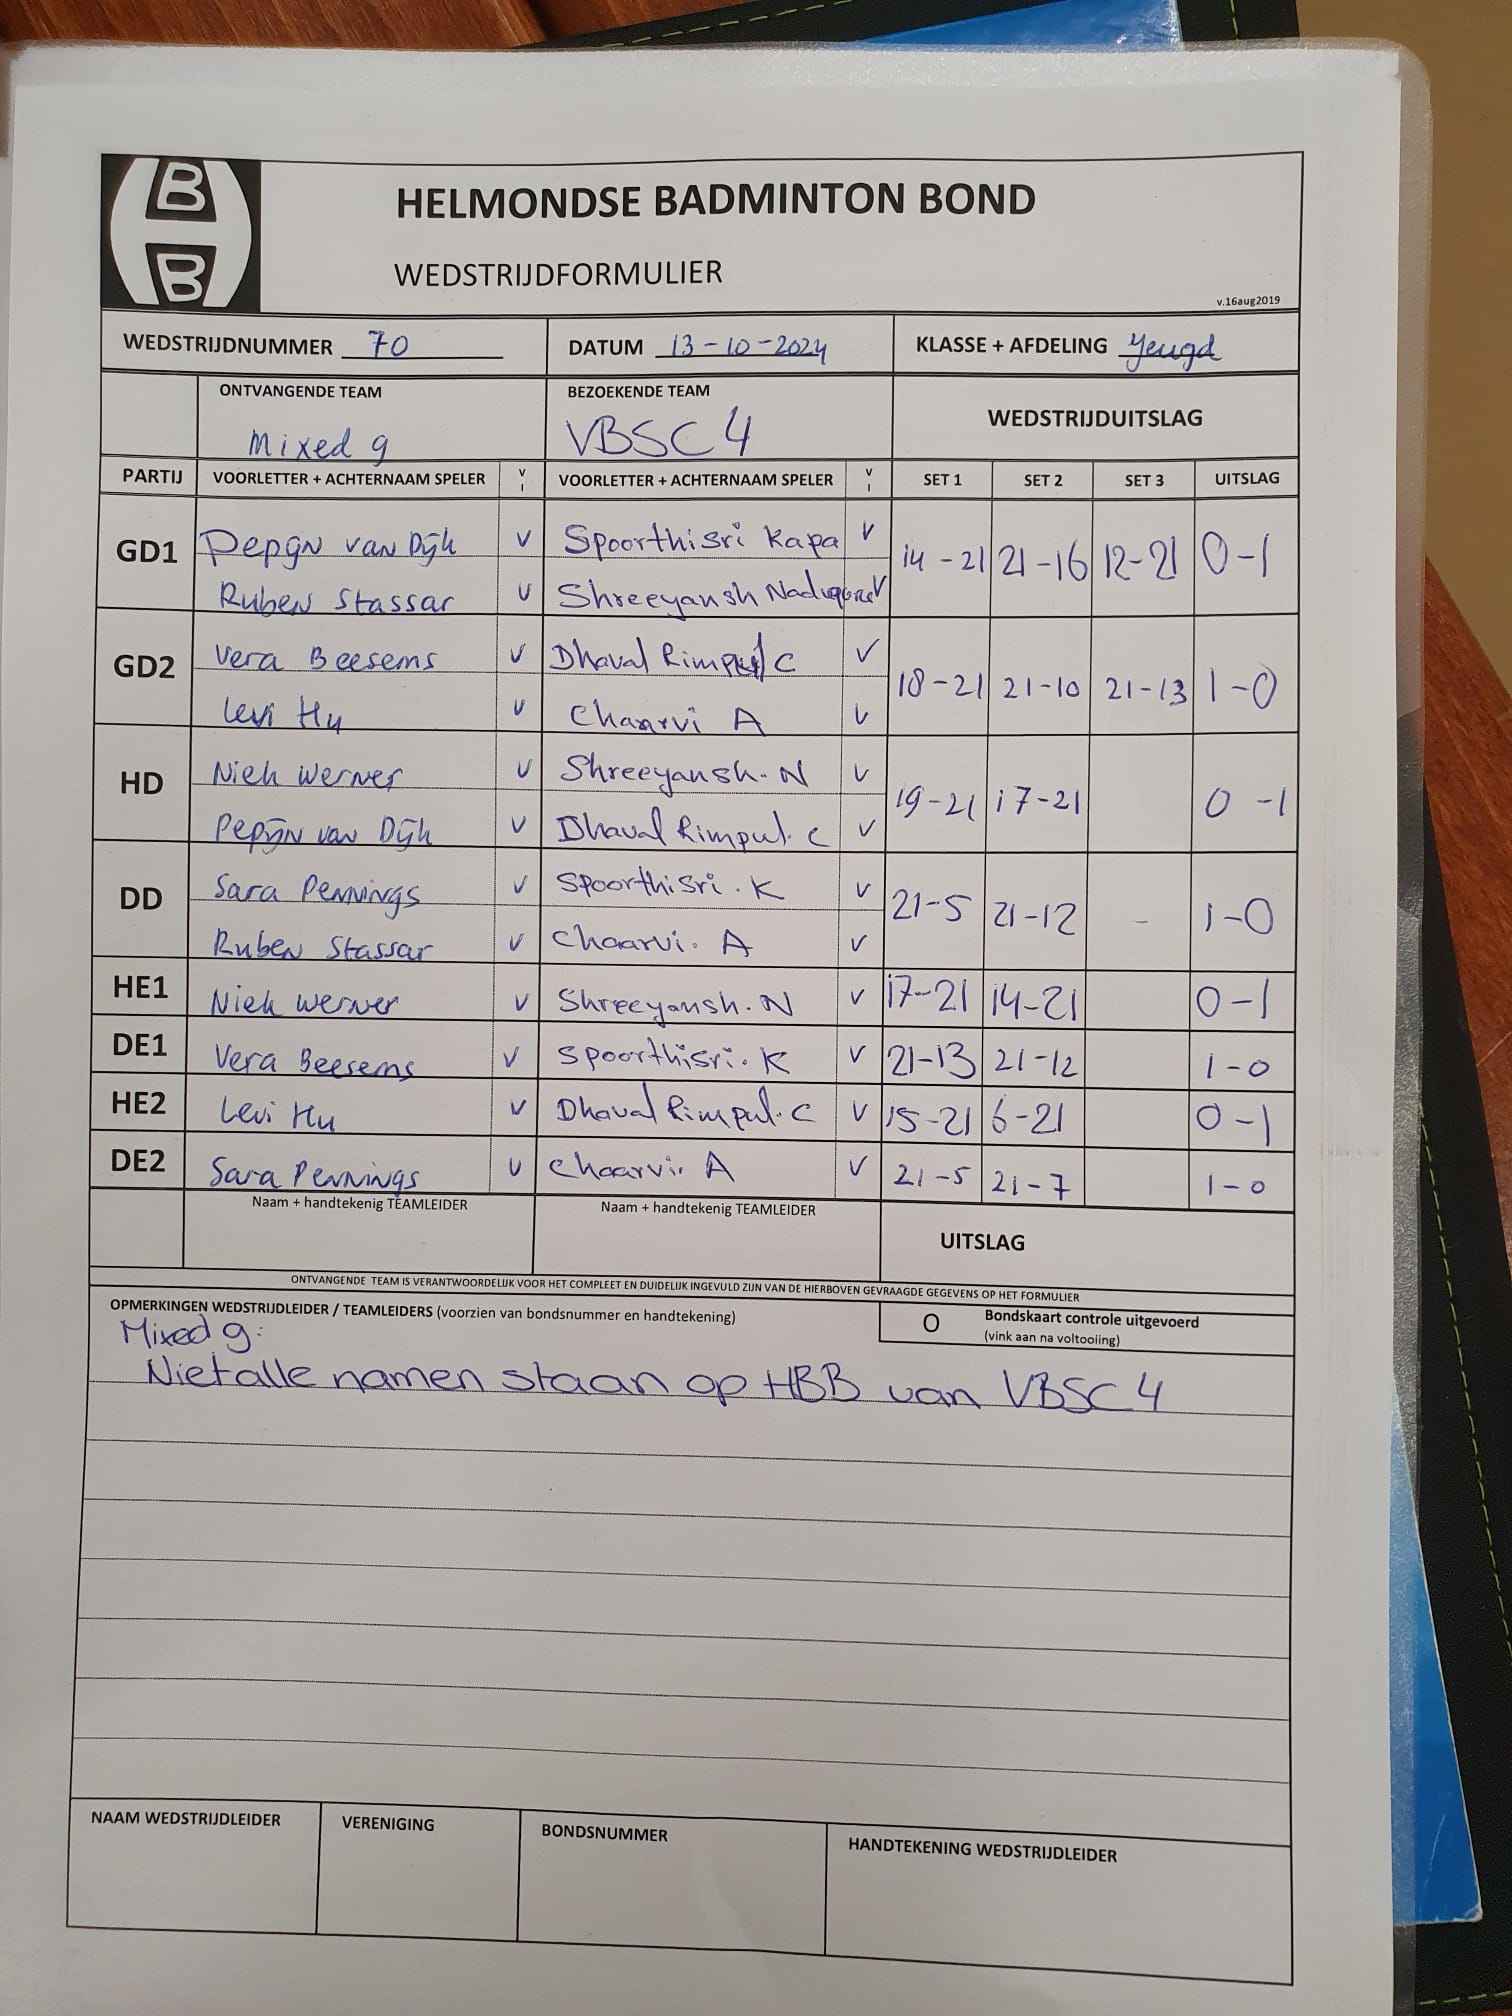 B
B
HELMONDSE BADMINTON BOND
WEDSTRIJDFORMULIER
v.16aug2019
WEDSTRIJDNUMMER 70 DATUM 13-10-2024 KLASSE + AFDELING Jeugd
ONTVANGENDE TEAM BEZOEKENDE TEAM WEDSTRIJDUITSLAG
Mixed 9 VBSC 4
PARTIJ VOORLETTER + ACHTERNAAM SPELER V I VOORLETTER + ACHTERNAAM SPELER V I SET 1 SET 2 SET 3 UITSLAG
GD1 Pepijn van Dijk V Spoorthisri Kapa V 14-21 21-16 12-21 0-1
Ruben Stassar V Shreeyansh V
GD2 Vera Beesems V Dhaval Rimpul C V 18-21 21-10 21-13 1-0
Levi Hu V Chaarvi A V
HD Niek Werner V Shreeyansh. N V 19-21 17-21 0-1
Pepijn van Dijk V Dhaval Rimpul. C V
DD Sara Pennings V Spoorthisri. K V 21-5 21-12 - 1-0
Ruben Stassar V Chaarvi. A V
HE1 Niek Werner V Shreeyansh. N V 17-21 14-21 0-1
DE1 Vera Beesems V Spoorthisri. K V 21-13 21-12 1-0
HE2 Levi Hu V Dhaval Rimpul. C V 15-21 6-21 0-1
DE2 Sara Pennings V Chaarvi. A V 21-5 21-7 1-0
Naam + handtekenig TEAMLEIDER Naam + handtekenig TEAMLEIDER UITSLAG
ONTVANGENDE TEAM IS VERANTWOORDELIJK VOOR HET COMPLEET EN DUIDELIJK INGEVULD ZIJN VAN DE HIERBOVEN GEVRAAGDE GEGEVENS OP HET FORMULIER
OPMERKINGEN WEDSTRIJDLEIDER / TEAMLEIDERS (voorzien van bondsnummer en handtekening) O Bondskaart controle uitgevoerd
(vink aan na voltooiing)
Mixed 9:
Niet alle namen staan op HBB van VBSC 4
NAAM WEDSTRIJDLEIDER VERENIGING BONDSNUMMER HANDTEKENING WEDSTRIJDLEIDER